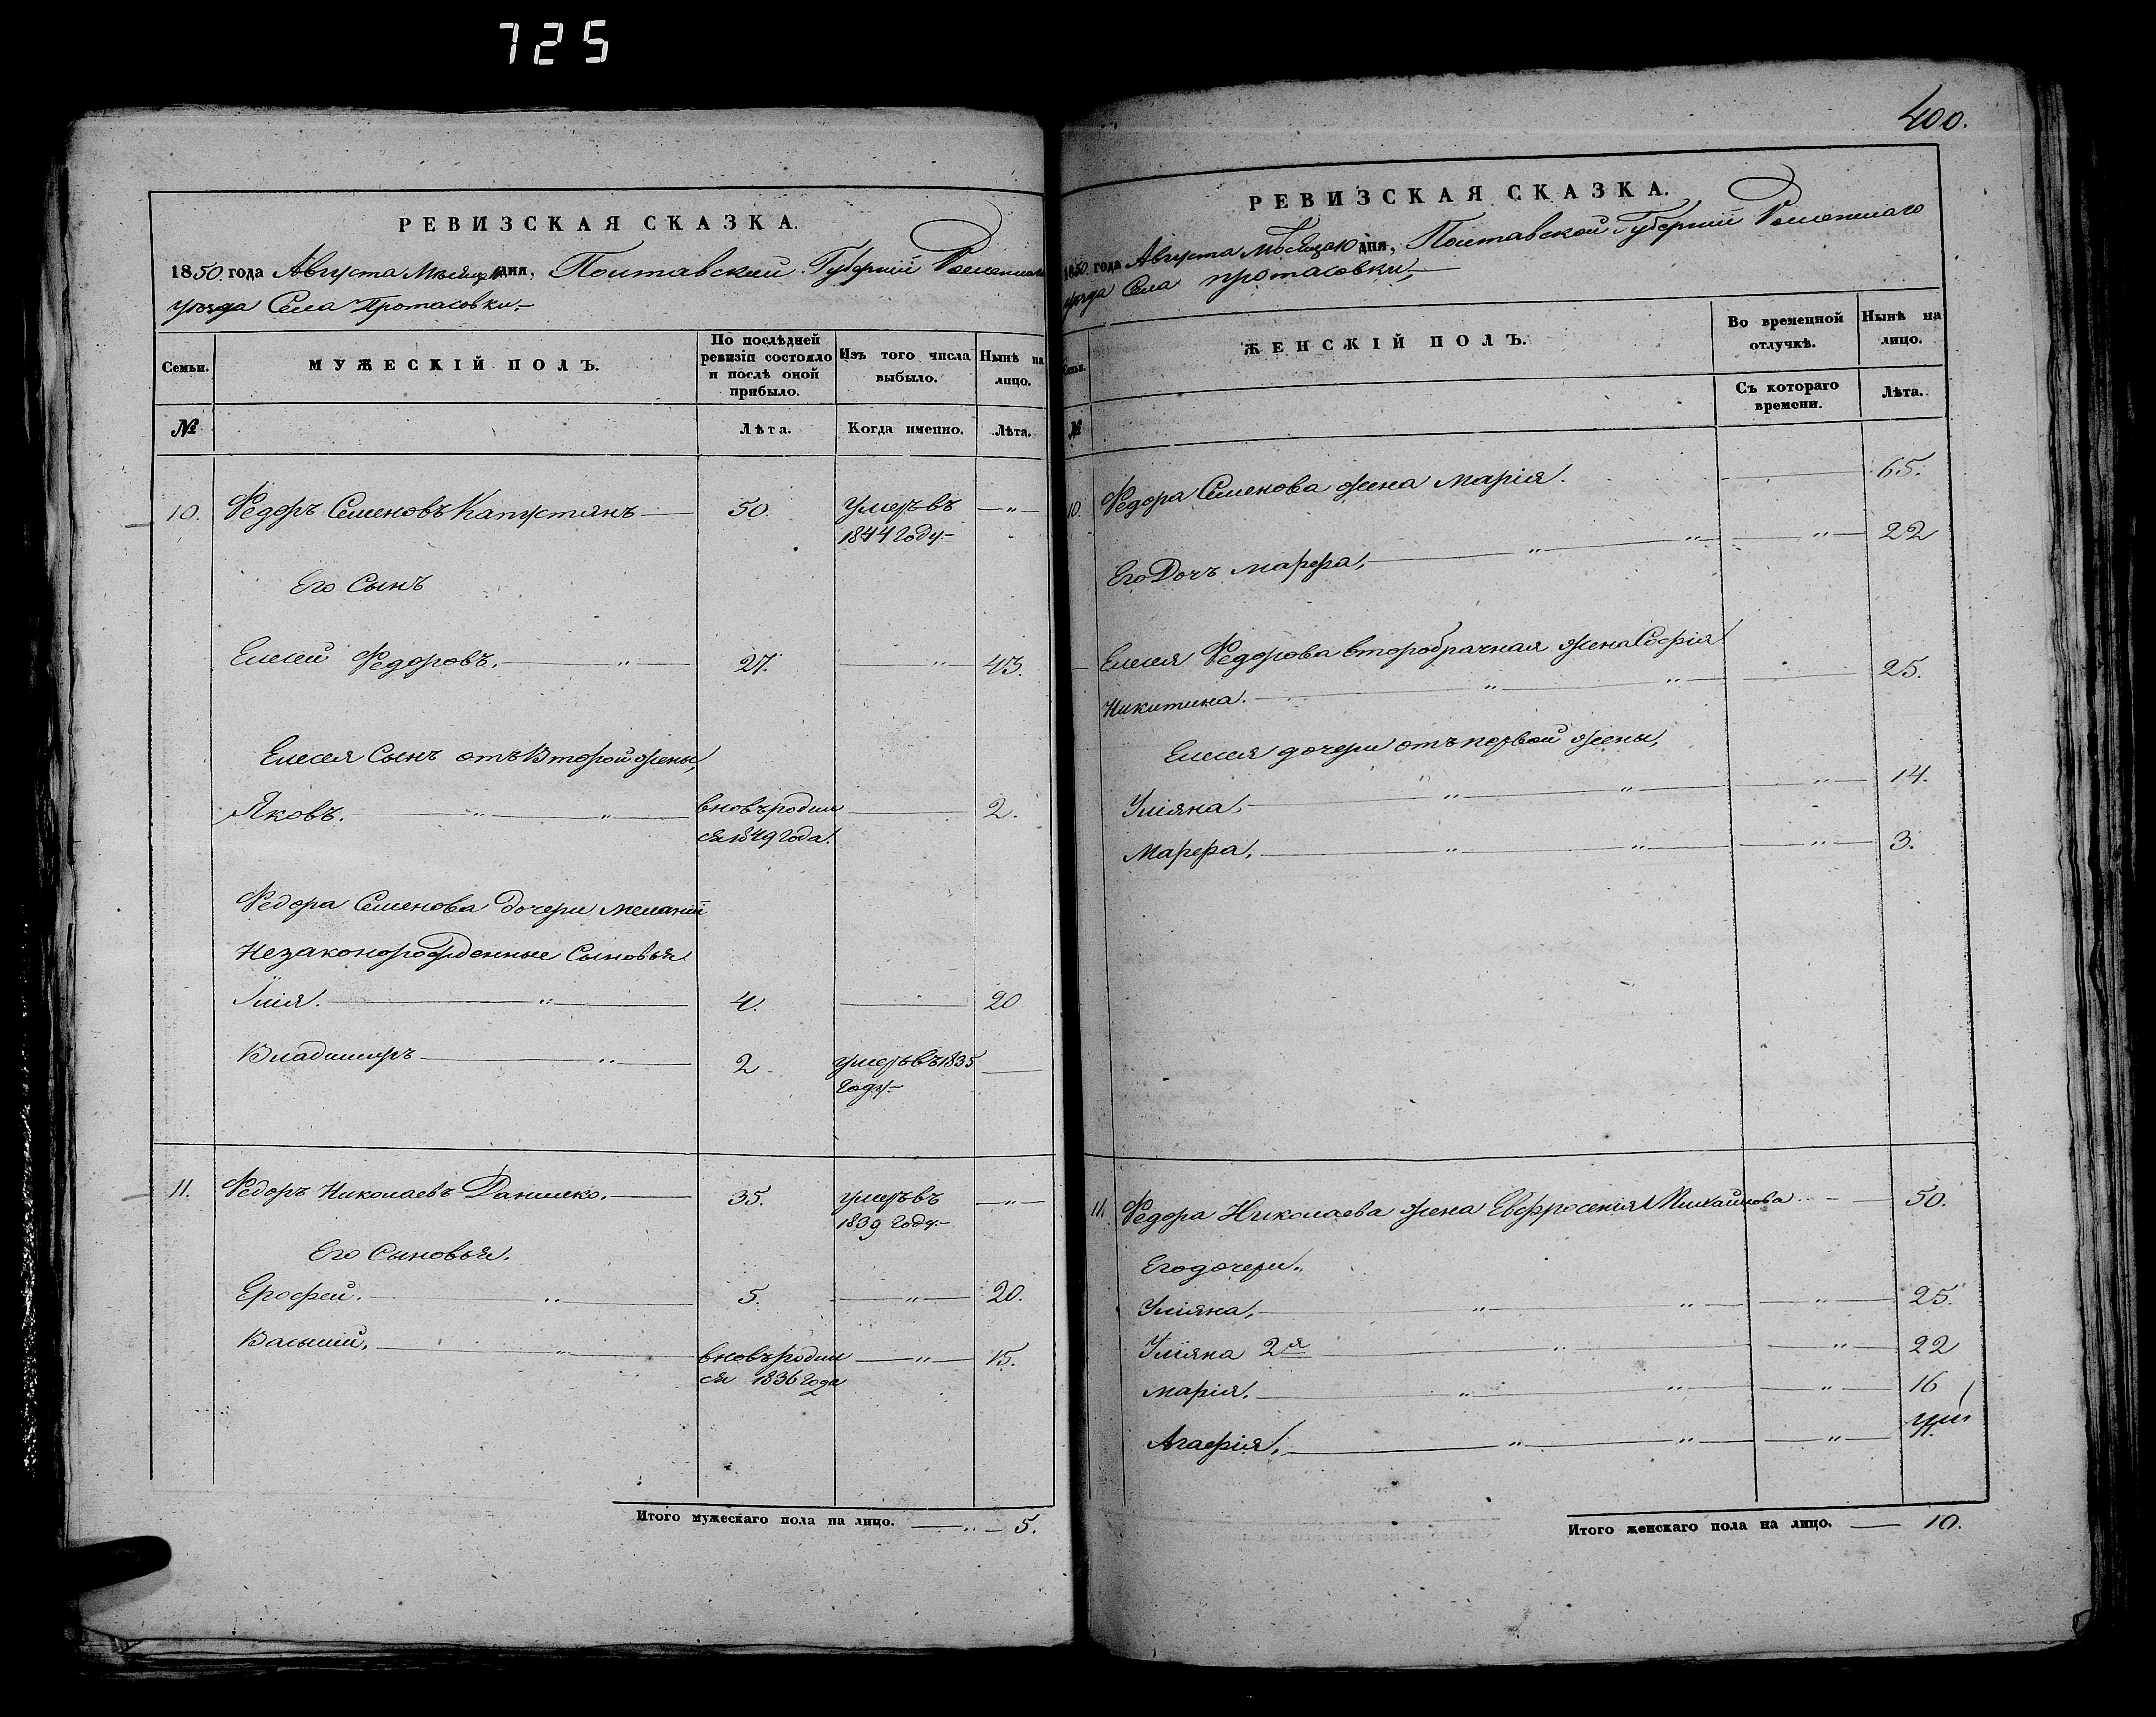 725
РЕВИЗСКАЯ СКАЗКА.
1850 года Августа Месяца дня, Полтавской Губерніи Роменскаго
уезда Села Протасовки,
Семьи.
МУЖЕСКІЙ ПОЛЪ.
По послѣдней ревизіи состояло и послѣ оной прибыло.
Изъ того числа выбыло.
Нынѣ на лицо.
№
Лѣта.
Когда именно.
Лѣта.
10. Федоръ Семеновъ Капустянъ 50. Умеръ въ —„—
1844 Году
Его Сынъ
Елисей Федоровъ. „ 27. „ 43.
Елисея Сынъ отъ Второй жены,
Яковъ. „ „ вновь родил 2.
ся 1849 года.
Федора Семенова дочери Меланіи
Незаконорожденные Сыновья
Илія. „ 4. 20
Владимиръ „ 2 умеръ въ 1835
Году
11. Федоръ Николаевъ Данилко. 35. умеръ въ —„—
1839 Году
Его Сыновья.
Ерофей. „ 5. „ 20.
Василий. „ вновь родил „ 15.
ся 1836 года
Итого мужескаго пола на лицо. „ 5.
400.
РЕВИЗСКАЯ СКАЗКА.
1850 года Августа Месяца дня, Полтавской Губерніи Роменскаго
уезда Села протасовки,
Семьи.
ЖЕНСКІЙ ПОЛЪ.
Во временной отлучкѣ.
Нынѣ на лицо.
№
Съ котораго времени.
Лѣта.
10. Федора Семенова жена Марія. 65.
Его Дочь Марфа, „ „ „ 22
Елисея Федорова второбрачная жена Софія
Никитина. „ „ 25.
Елисея дочери отъ первой жены,
Уліяна, „ „ „ 14.
Марфа, „ „ „ 3.
11. Федора Николаева жена Евфросенія Михайлова 50.
Его дочери.
Уліяна, „ „ „ 25.
Уліяна 2я „ „ 22
Марія, „ „ „ 16
Агафія, „ „ „ 11.
Итого женскаго пола на лицо. 10.